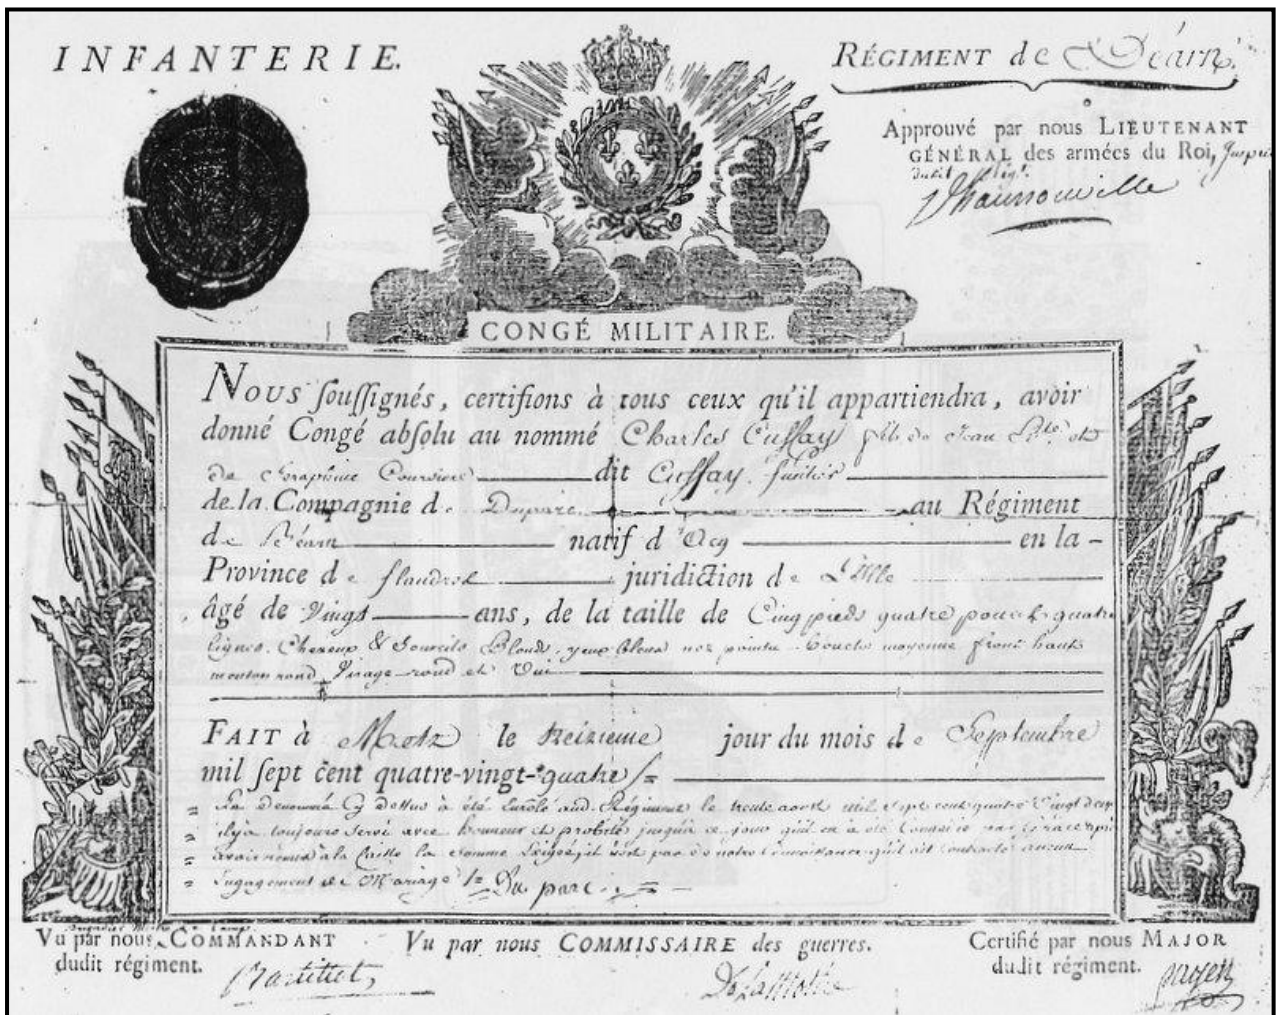 INFANTERIE.
RÉGIMENT de Béarn.
Approuvé par nous LIEUTENANT
GÉNÉRAL des armées du Roi,
dudit Régt.
CONGÉ MILITAIRE.
Nous soussignés, certifions à tous ceux qu'il appartiendra, avoir
donné Congé absolu au nommé Charles Cuffay fils de Jean et
de dit Cuffay fusilier
de la Compagnie de Duparc au Régiment
de Béarn natif d' en la
Province de flandres juridiction de Lille
âgé de Vingt ans, de la taille de Cinq pieds quatre pouces quatre
lignes. Cheveux & Sourcils Blonds, yeux bleus nez pointu Bouche moyenne front haut
menton rond Visage rond et
FAIT à Metz le treizieme jour du mois de Septembre
mil sept cent quatre-vingt-quatre
Le denommé Cy dessus à été Enrolé aud. Régiment le trente aoust mil sept cent quatre Vingt
il y a toujours servi avec honneur et probité jusqu'à ce jour qu'il en à été par Grace
à la Caisse la Somme Exigée, il n'est pas de notre Connoissance qu'il ait contracté aucun
Engagement de Mariage Du parc
Vu par nous COMMANDANT
dudit régiment.
Vu par nous COMMISSAIRE des guerres.
Certifié par nous MAJOR
dudit régiment.